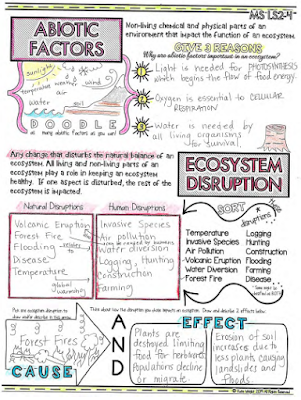 MS LS2-4
ABIOTIC
FACTORS
Non-living chemical and physical parts of an
environment that impact the function of an ecosystem.
GIVE 3 REASONS
Why are abiotic factors important in an ecosystem?
sunlight
temperature
wind
air
water
soil
DOODLE
as many abiotic factors as you can!
1 Light is needed for PHOTOSYNTHESIS
which begins the flow of food energy.
2 Oxygen is essential to CELLULAR
RESPIRATION
3 Water is needed by
all living organisms
for survival
Any change that disturbs the natural balance of an
ecosystem. All living and non-living parts of an
ecosystem play a role in keeping an ecosystem
healthy. If one aspect is disturbed, the rest of the
ecosystem is impacted.
ECOSYSTEM
DISRUPTION
Natural Disruptions
Volcanic Eruption
Forest Fire
Flooding
Disease
Temperature
global
warming
Human Disruptions
Invasive Species
Air pollution
Water diversion
Logging, Hunting
Construction
Farming
SORT
these
disruptions
Temperature
Invasive Species
Air Pollution
Volcanic Eruption
Water Diversion
Forest Fire
Logging
Hunting
Construction
Flooding
Farming
Disease
Pick one ecosystem disruption to
draw and/or describe in first arrow.
Think about how the disruption you chose impacts an ecosystem. Draw and describe 2 effects below.
Forest Fires
CAUSE
AND
EFFECT
Plants are
destroyed limiting
food for herbivores.
Populations decline
or migrate.
Erosion of soil
increases due to
less plants, causing
landslides and
floods.